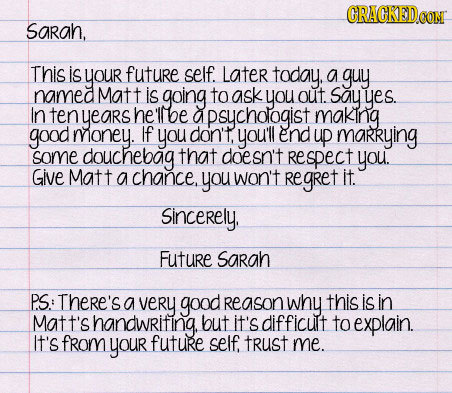 CRACKED.COM
Sarah,
This is your future self. Later today, a guy
named Matt is going to ask you out. Say yes.
In ten years he'll be a psychologist making
good money. If you don't, you'll end up marrying
some douchebag that doesn't respect you.
Give Matt a chance, you won't regret it.
Sincerely,
Future Sarah
P.S.: There's a very good reason why this is in
Matt's handwriting, but it's difficult to explain.
It's from your future self, trust me.